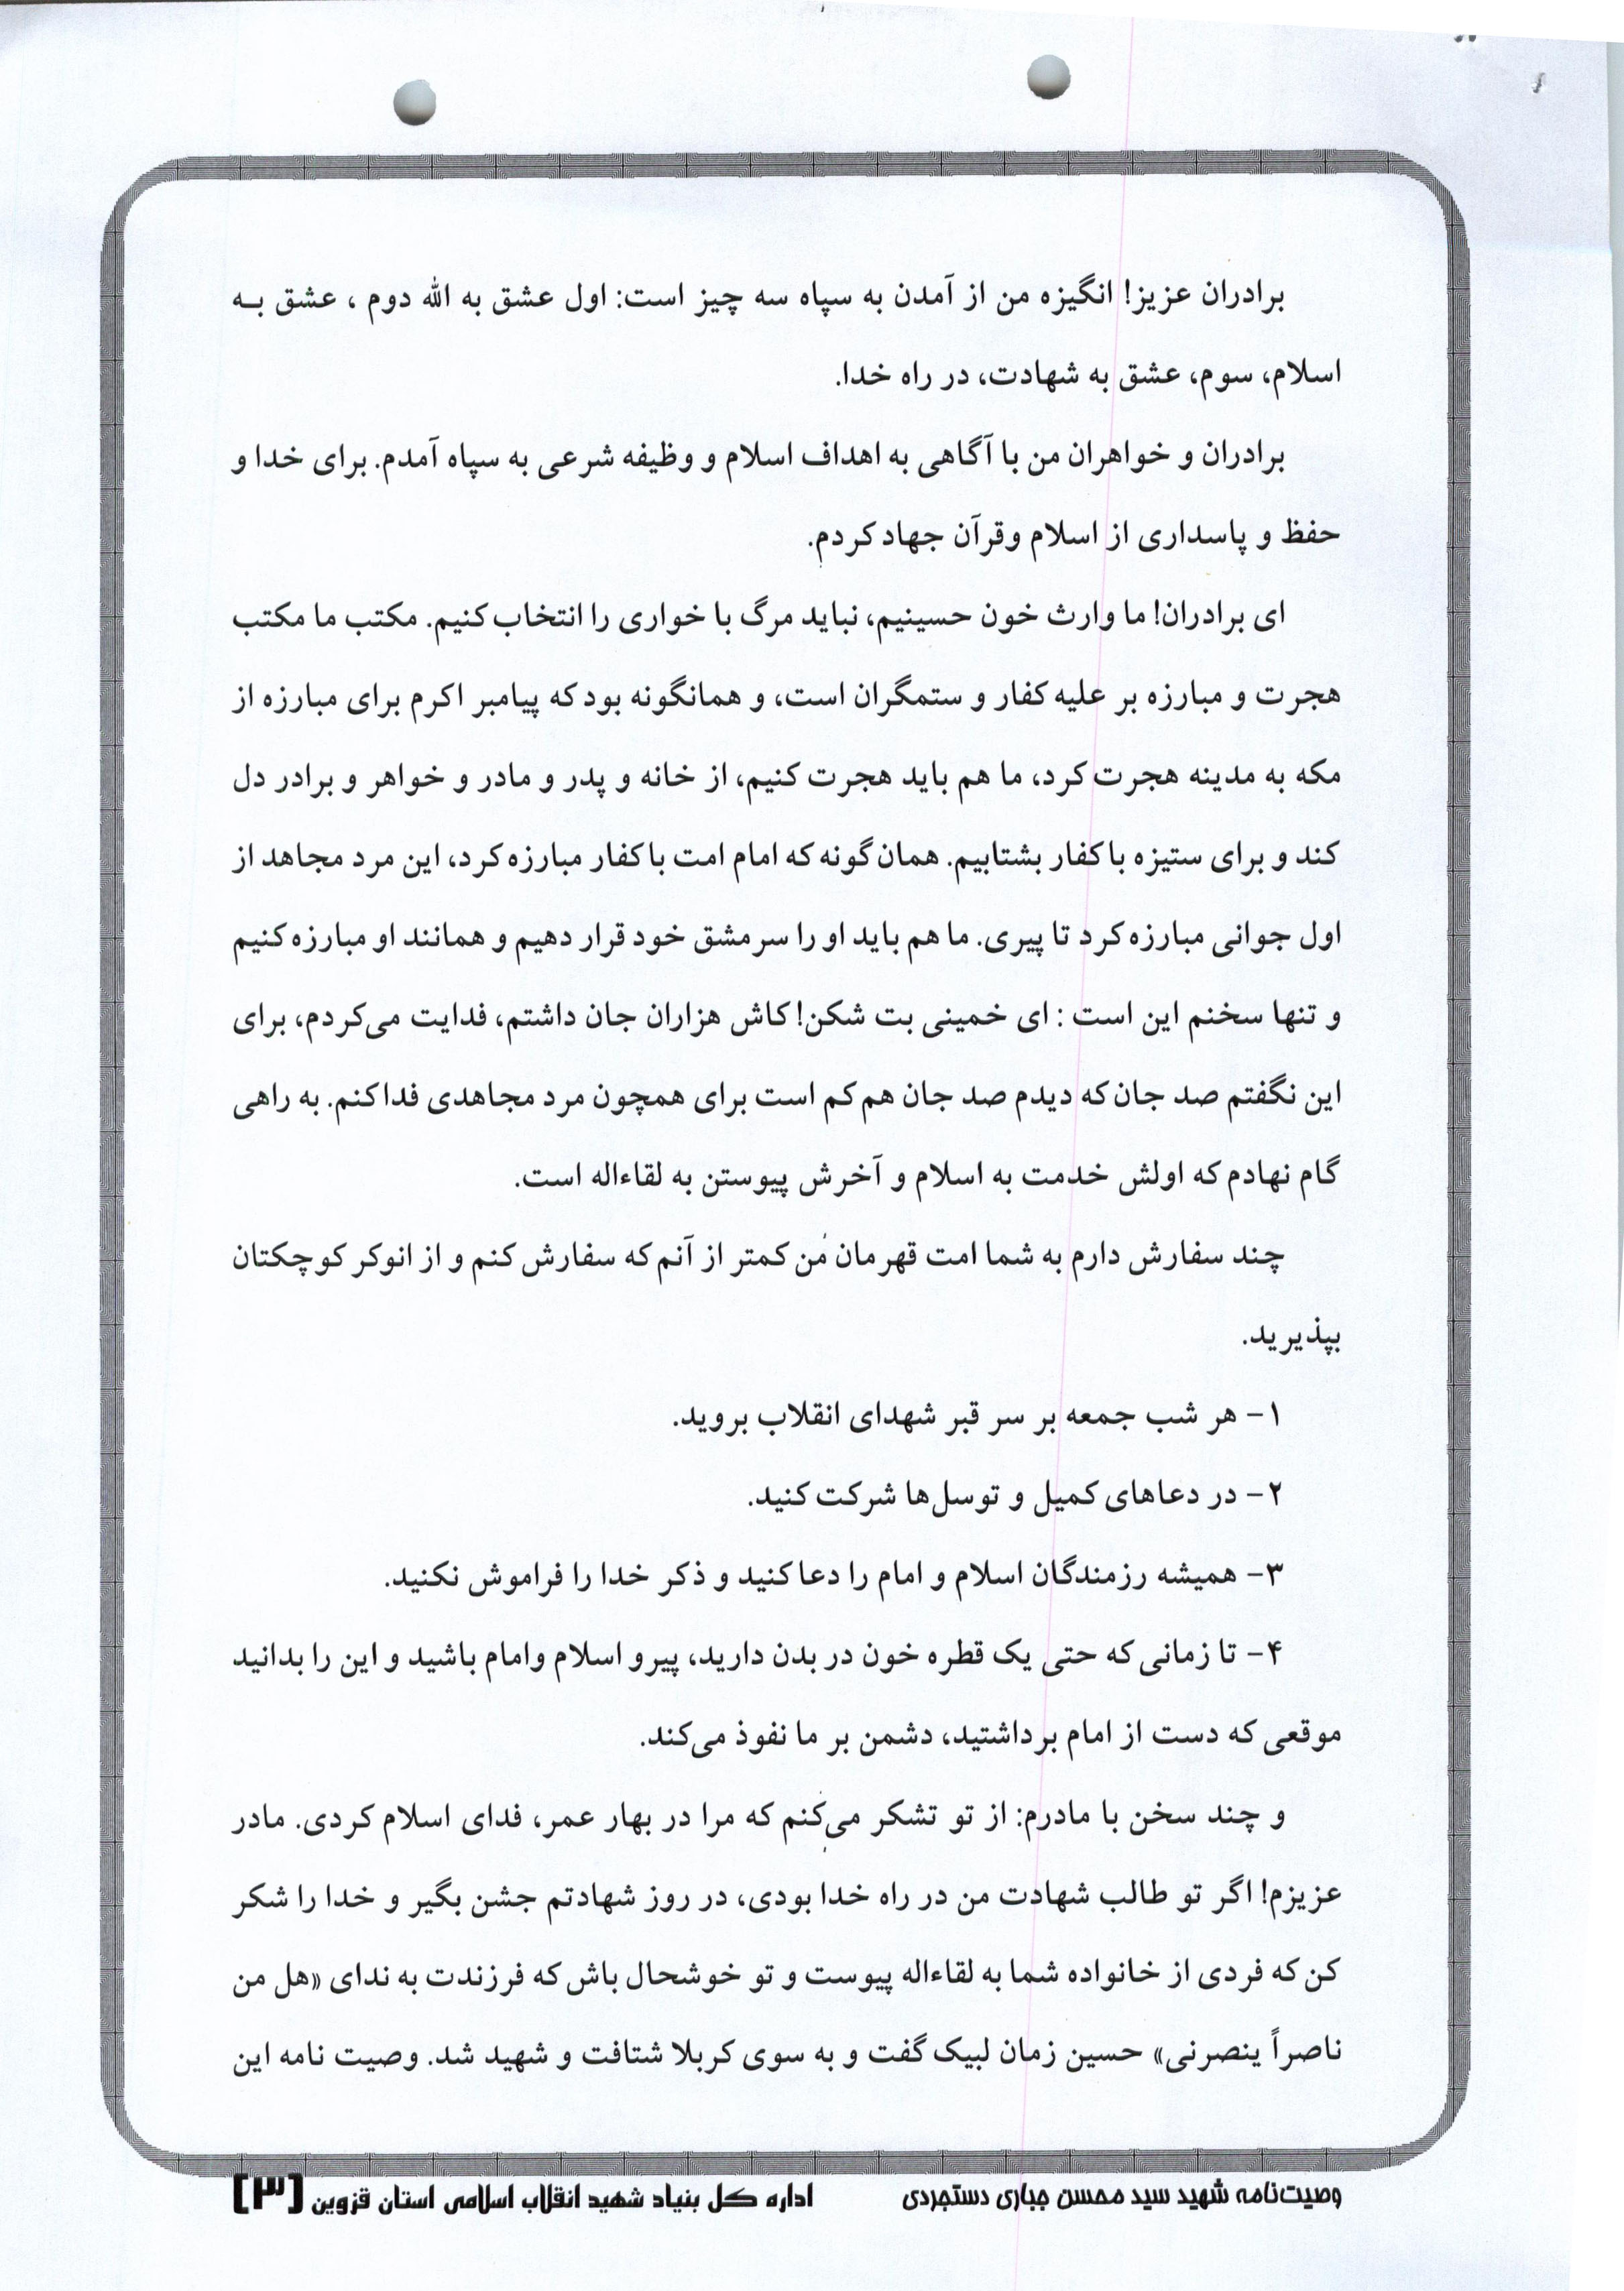 برادران عزیز! انگیزه من از آمدن به سپاه سه چیز است: اول عشق به الله دوم ، عشق بـه
اسلام، سوم، عشق به شهادت، در راه خدا.
برادران و خواهران من با آگاهی به اهداف اسلام و وظیفه شرعی به سپاه آمدم. برای خدا و
حفظ و پاسداری از اسلام وقرآن جهاد کردم.
ای برادران! ما وارث خون حسینیم، نباید مرگ با خواری را انتخاب کنیم. مکتب ما مکتب
هجرت و مبارزه بر علیه کفار و ستمگران است، و همانگونه بود که پیامبر اکرم برای مبارزه از
مکه به مدینه هجرت کرد، ما هم باید هجرت کنیم، از خانه و پدر و مادر و خواهر و برادر دل
کند و برای ستیزه با کفار بشتابیم. همان گونه که امام امت با کفار مبارزه کرد، این مرد مجاهد از
اول جوانی مبارزه کرد تا پیری. ما هم باید او را سرمشق خود قرار دهیم و همانند او مبارزه کنیم
و تنها سخنم این است : ای خمینی بت شکن! کاش هزاران جان داشتم، فدایت می‌کردم، برای
این نگفتم صد جان که دیدم صد جان هم کم است برای همچون مرد مجاهدی فدا کنم. به راهی
گام نهادم که اولش خدمت به اسلام و آخرش پیوستن به لقاءاله است.
چند سفارش دارم به شما امت قهرمان من کمتر از آنم که سفارش کنم و از انوکر کوچکتان
بپذیرید.
۱- هر شب جمعه بر سر قبر شهدای انقلاب بروید.
۲- در دعاهای کمیل و توسل‌ها شرکت کنید.
۳- همیشه رزمندگان اسلام و امام را دعا کنید و ذکر خدا را فراموش نکنید.
۴- تا زمانی که حتی یک قطره خون در بدن دارید، پیرو اسلام وامام باشید و این را بدانید
موقعی که دست از امام برداشتید، دشمن بر ما نفوذ می‌کند.
و چند سخن با مادرم: از تو تشکر می‌کنم که مرا در بهار عمر، فدای اسلام کردی. مادر
عزیزم! اگر تو طالب شهادت من در راه خدا بودی، در روز شهادتم جشن بگیر و خدا را شکر
کن که فردی از خانواده شما به لقاءاله پیوست و تو خوشحال باش که فرزندت به ندای «هل من
ناصراً ینصرنی» حسین زمان لبیک گفت و به سوی کربلا شتافت و شهید شد. وصیت نامه این
وصیت‌نامه شهید سید محسن جباری دستجردی اداره کل بنیاد شهید انقلاب اسلامی استان قزوین [۳]